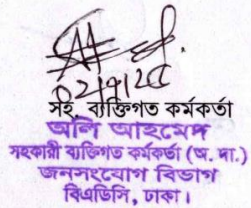 সহ. ব্যক্তিগত কর্মকর্তা
অলি আহমেদ
সহকারী ব্যক্তিগত কর্মকর্তা (অ. দা.)
জনসংযোগ বিভাগ
বিএডিসি, ঢাকা।